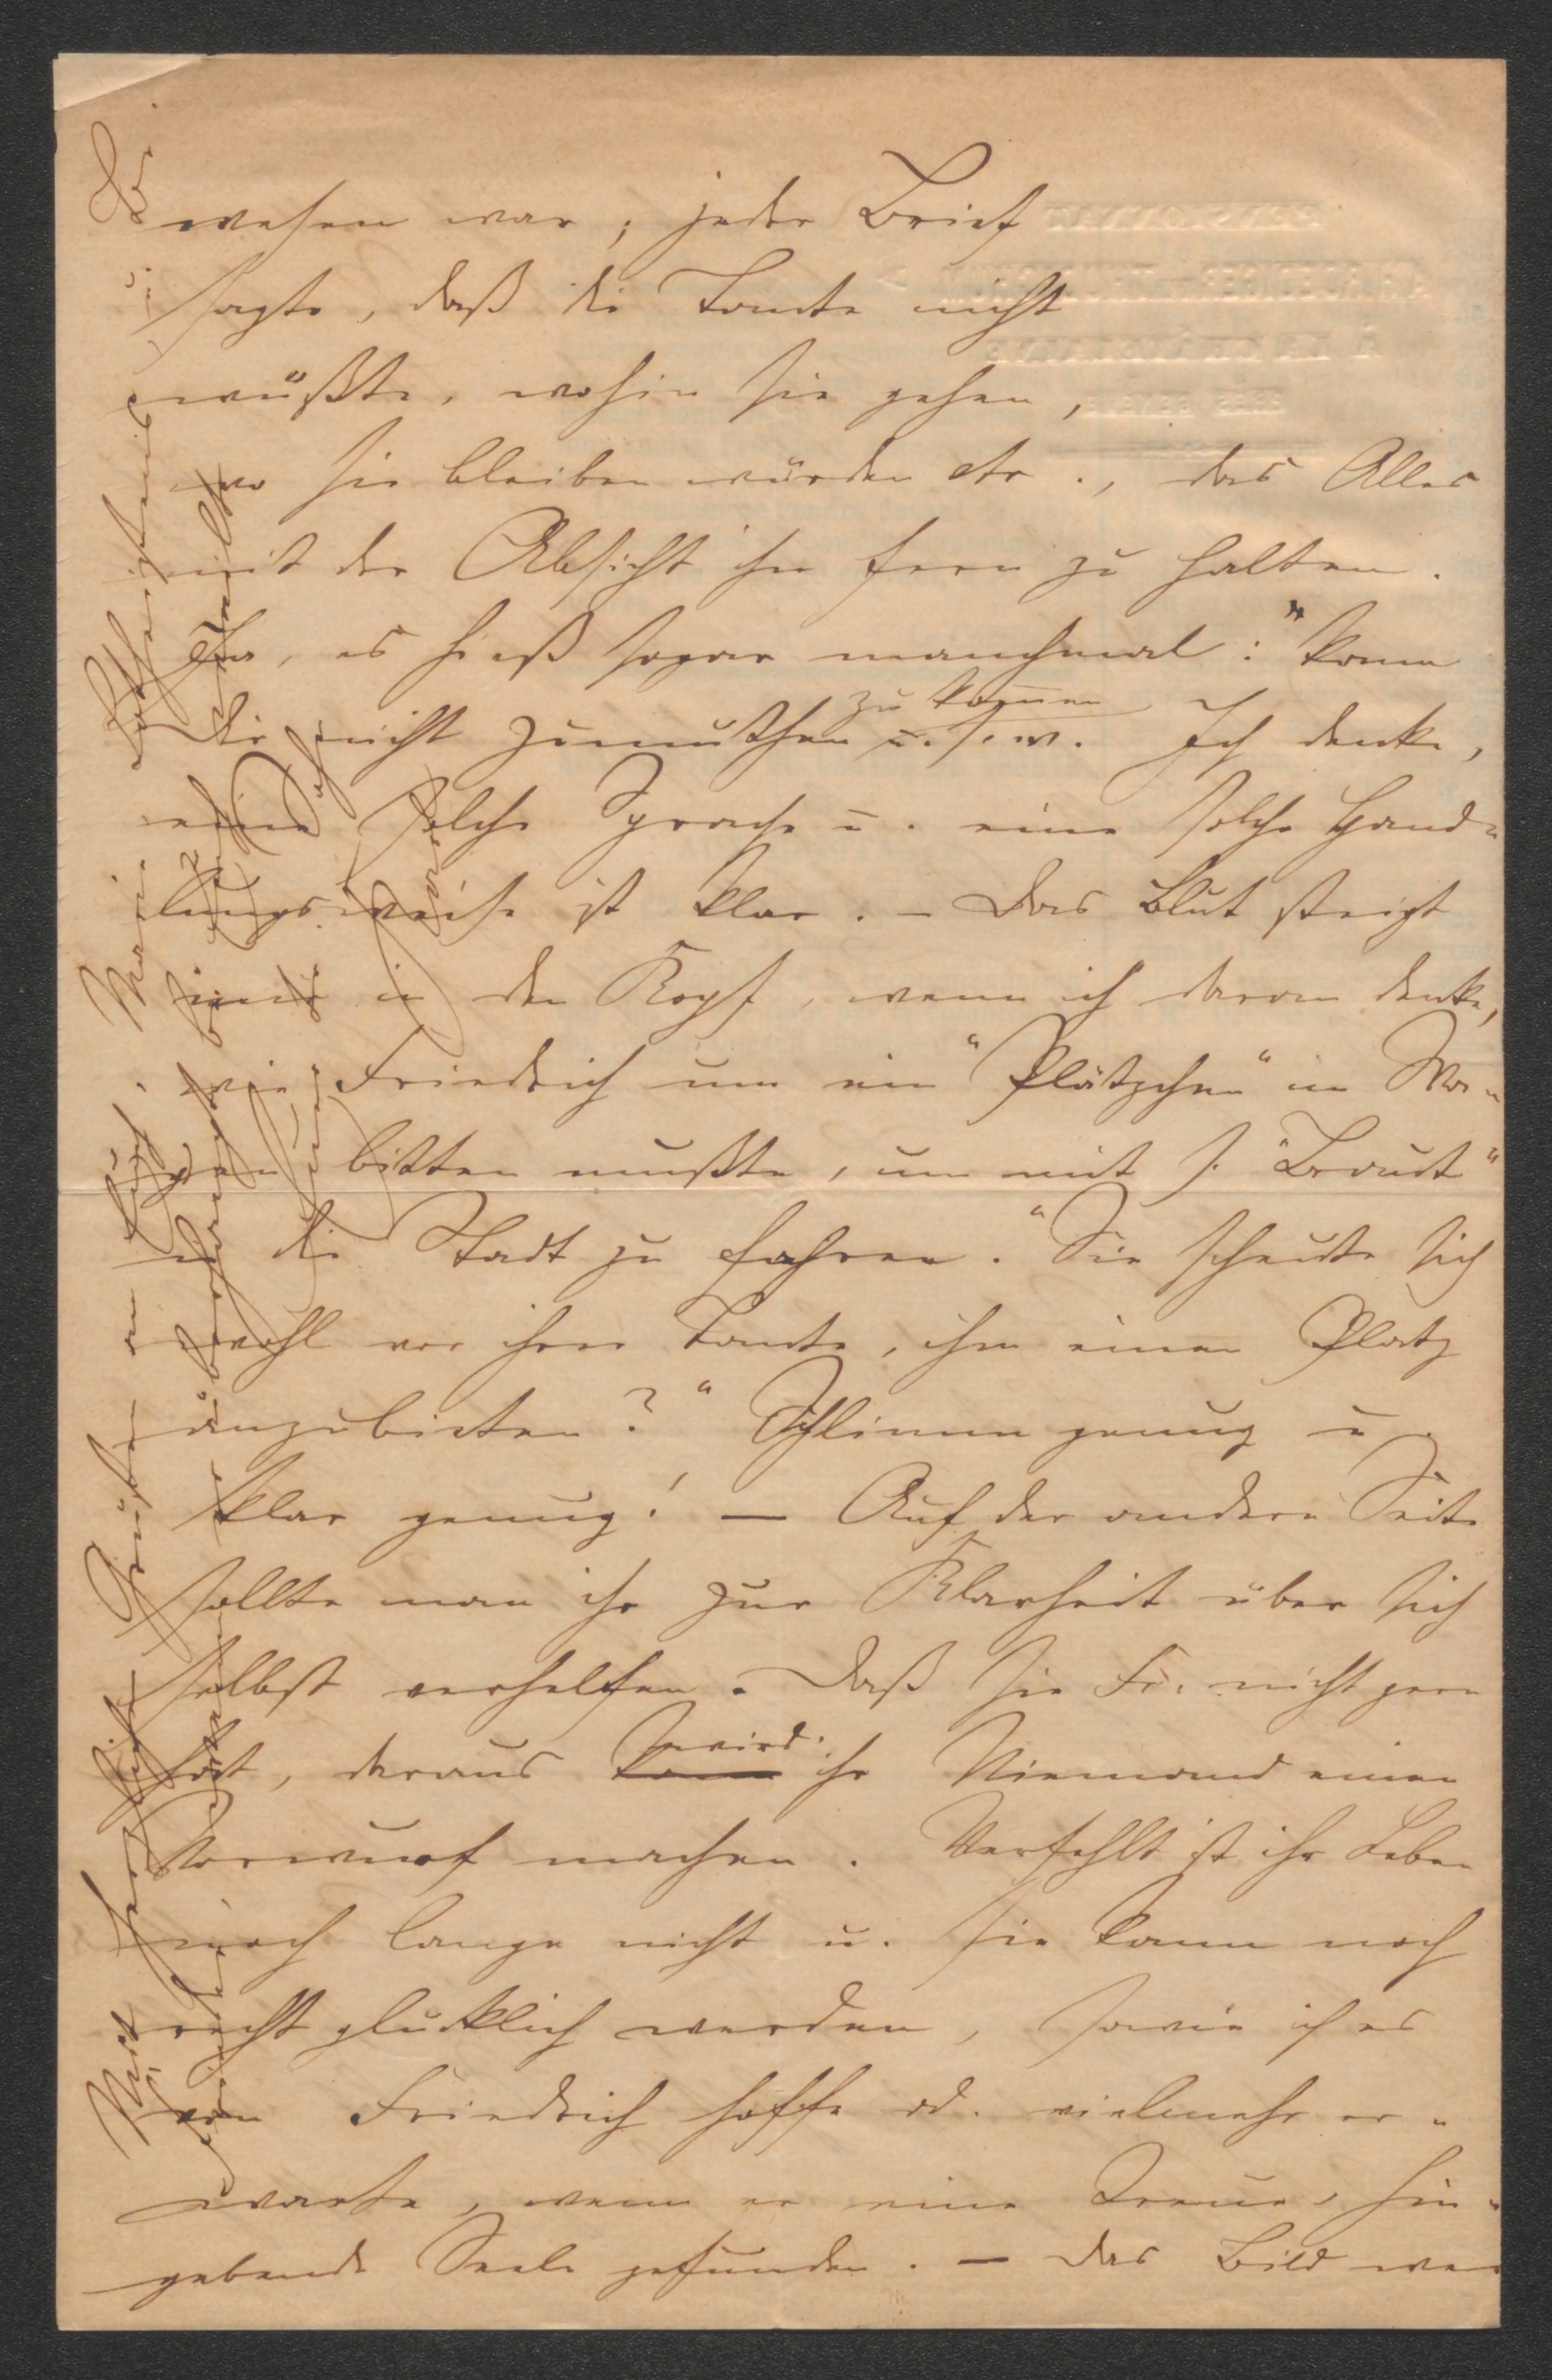 wesen war; jeder Brief
sagte, daß die Tante nicht
wüßte, wohin sie gehen,
wo sie bleiben würden etc., das Alles
mit der Absicht ihn fern zu halten.
Ja, es hieß sogar manchmal: "kann
Dir nicht zumuthen zu kommen u. s. w. Ich denke,
eine solche Sprache u. eine solche Hand-
lungsweise ist klar. – Das Blut steigt
mir in den Kopf, wenn ich daran denke,
wie Friedrich um ein "Plätzchen" im Wa-
gen bitten mußte, um mit s. "Braut"
in die Stadt zu fahren. "Sie scheute sich
wohl vor ihrer Tante, ihm einen Platz
anzubieten?" Schlimm genug u.
klar genug! – Auf der andern Seite
sollte man ihr zur Klarheit über sich
selbst verhelfen. Daß sie Fr. nicht gern
hat, daraus kann wird ihr Niemand einen
Vorwurf machen. Verfehlt ist ihr Leben
noch lange nicht u. sie kann noch
recht glücklich werden, sowie ich es
von Friedrich hoffe od. vielmehr er-
warte, wenn er eine treue, hin-
gebende Seele gefunden. – Das Bild war
Mit herzlichen Grüßen an Euch